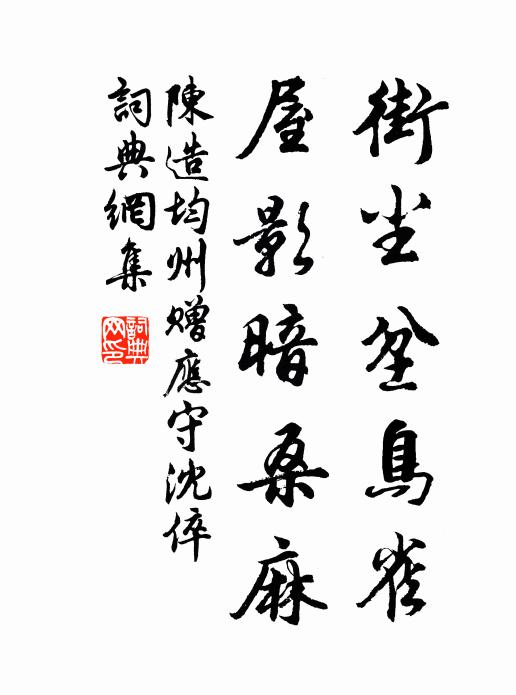 街尘坌鳥雀
屋影暗桑麻
陳造均州贈應守沈倅
詞典網集
詞典网印